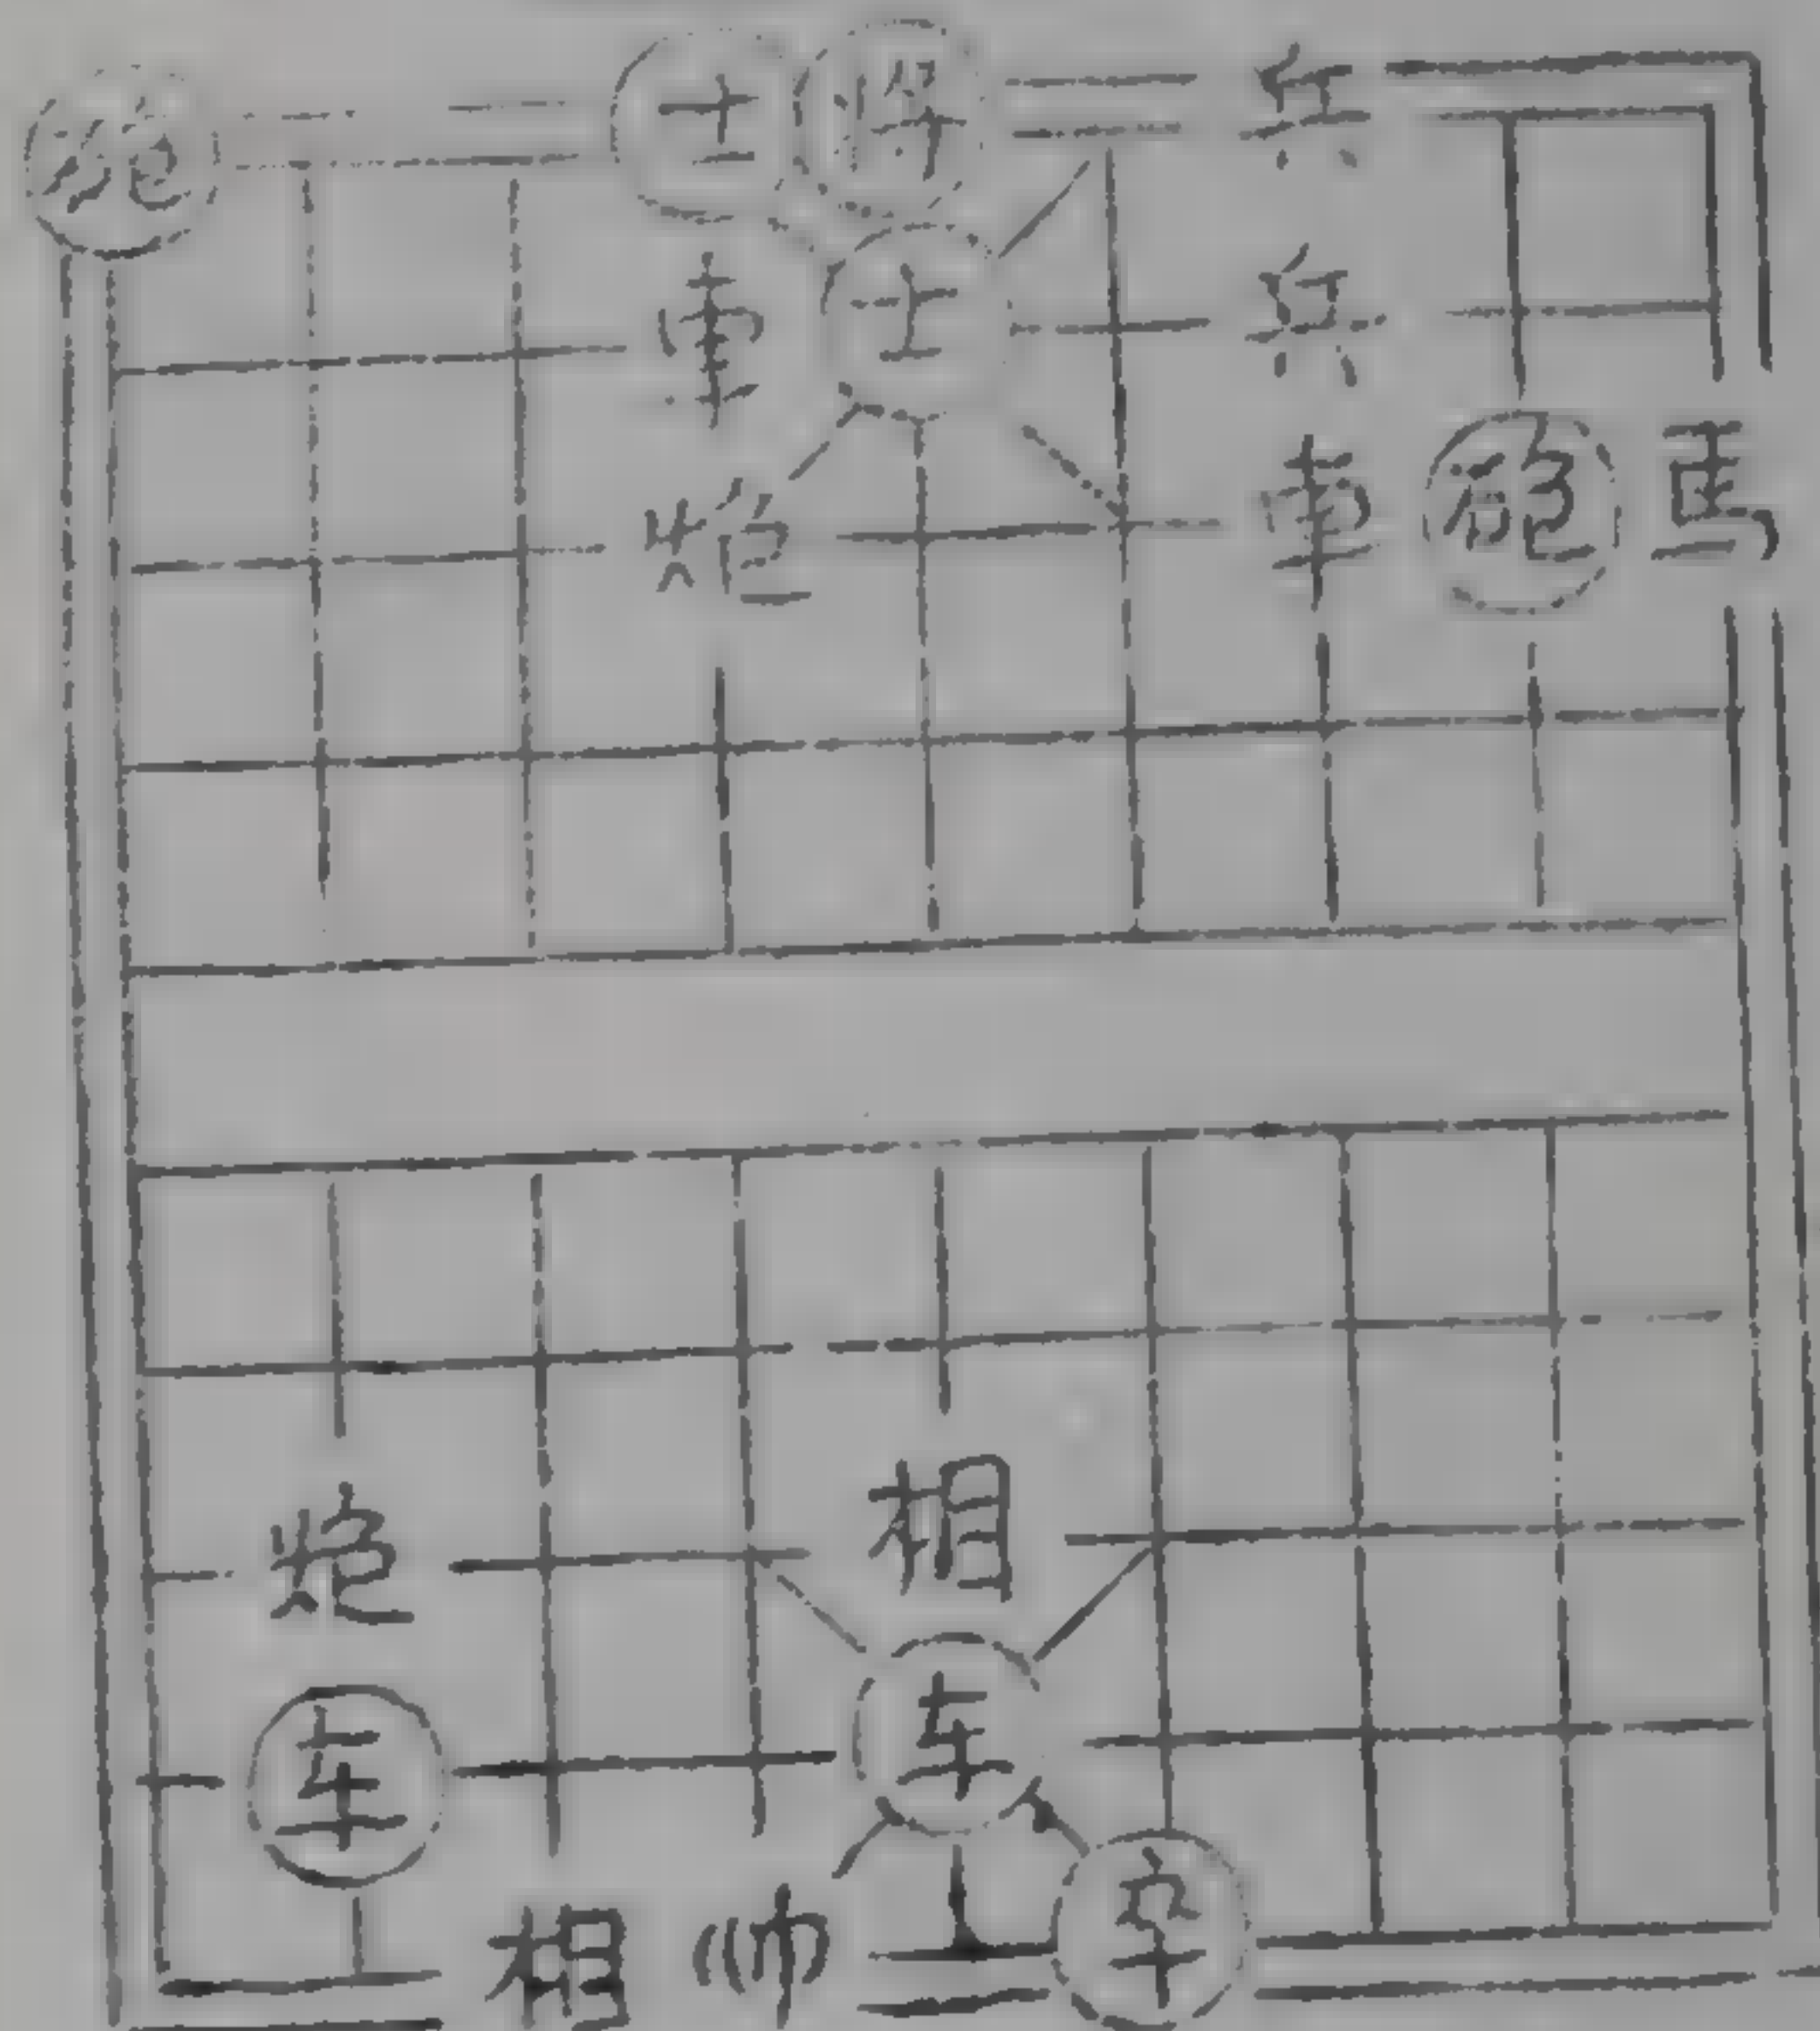 砲 士 将 兵
車 士 兵
炮 車 砲 馬
炮 相
车 车
相 帅 卒